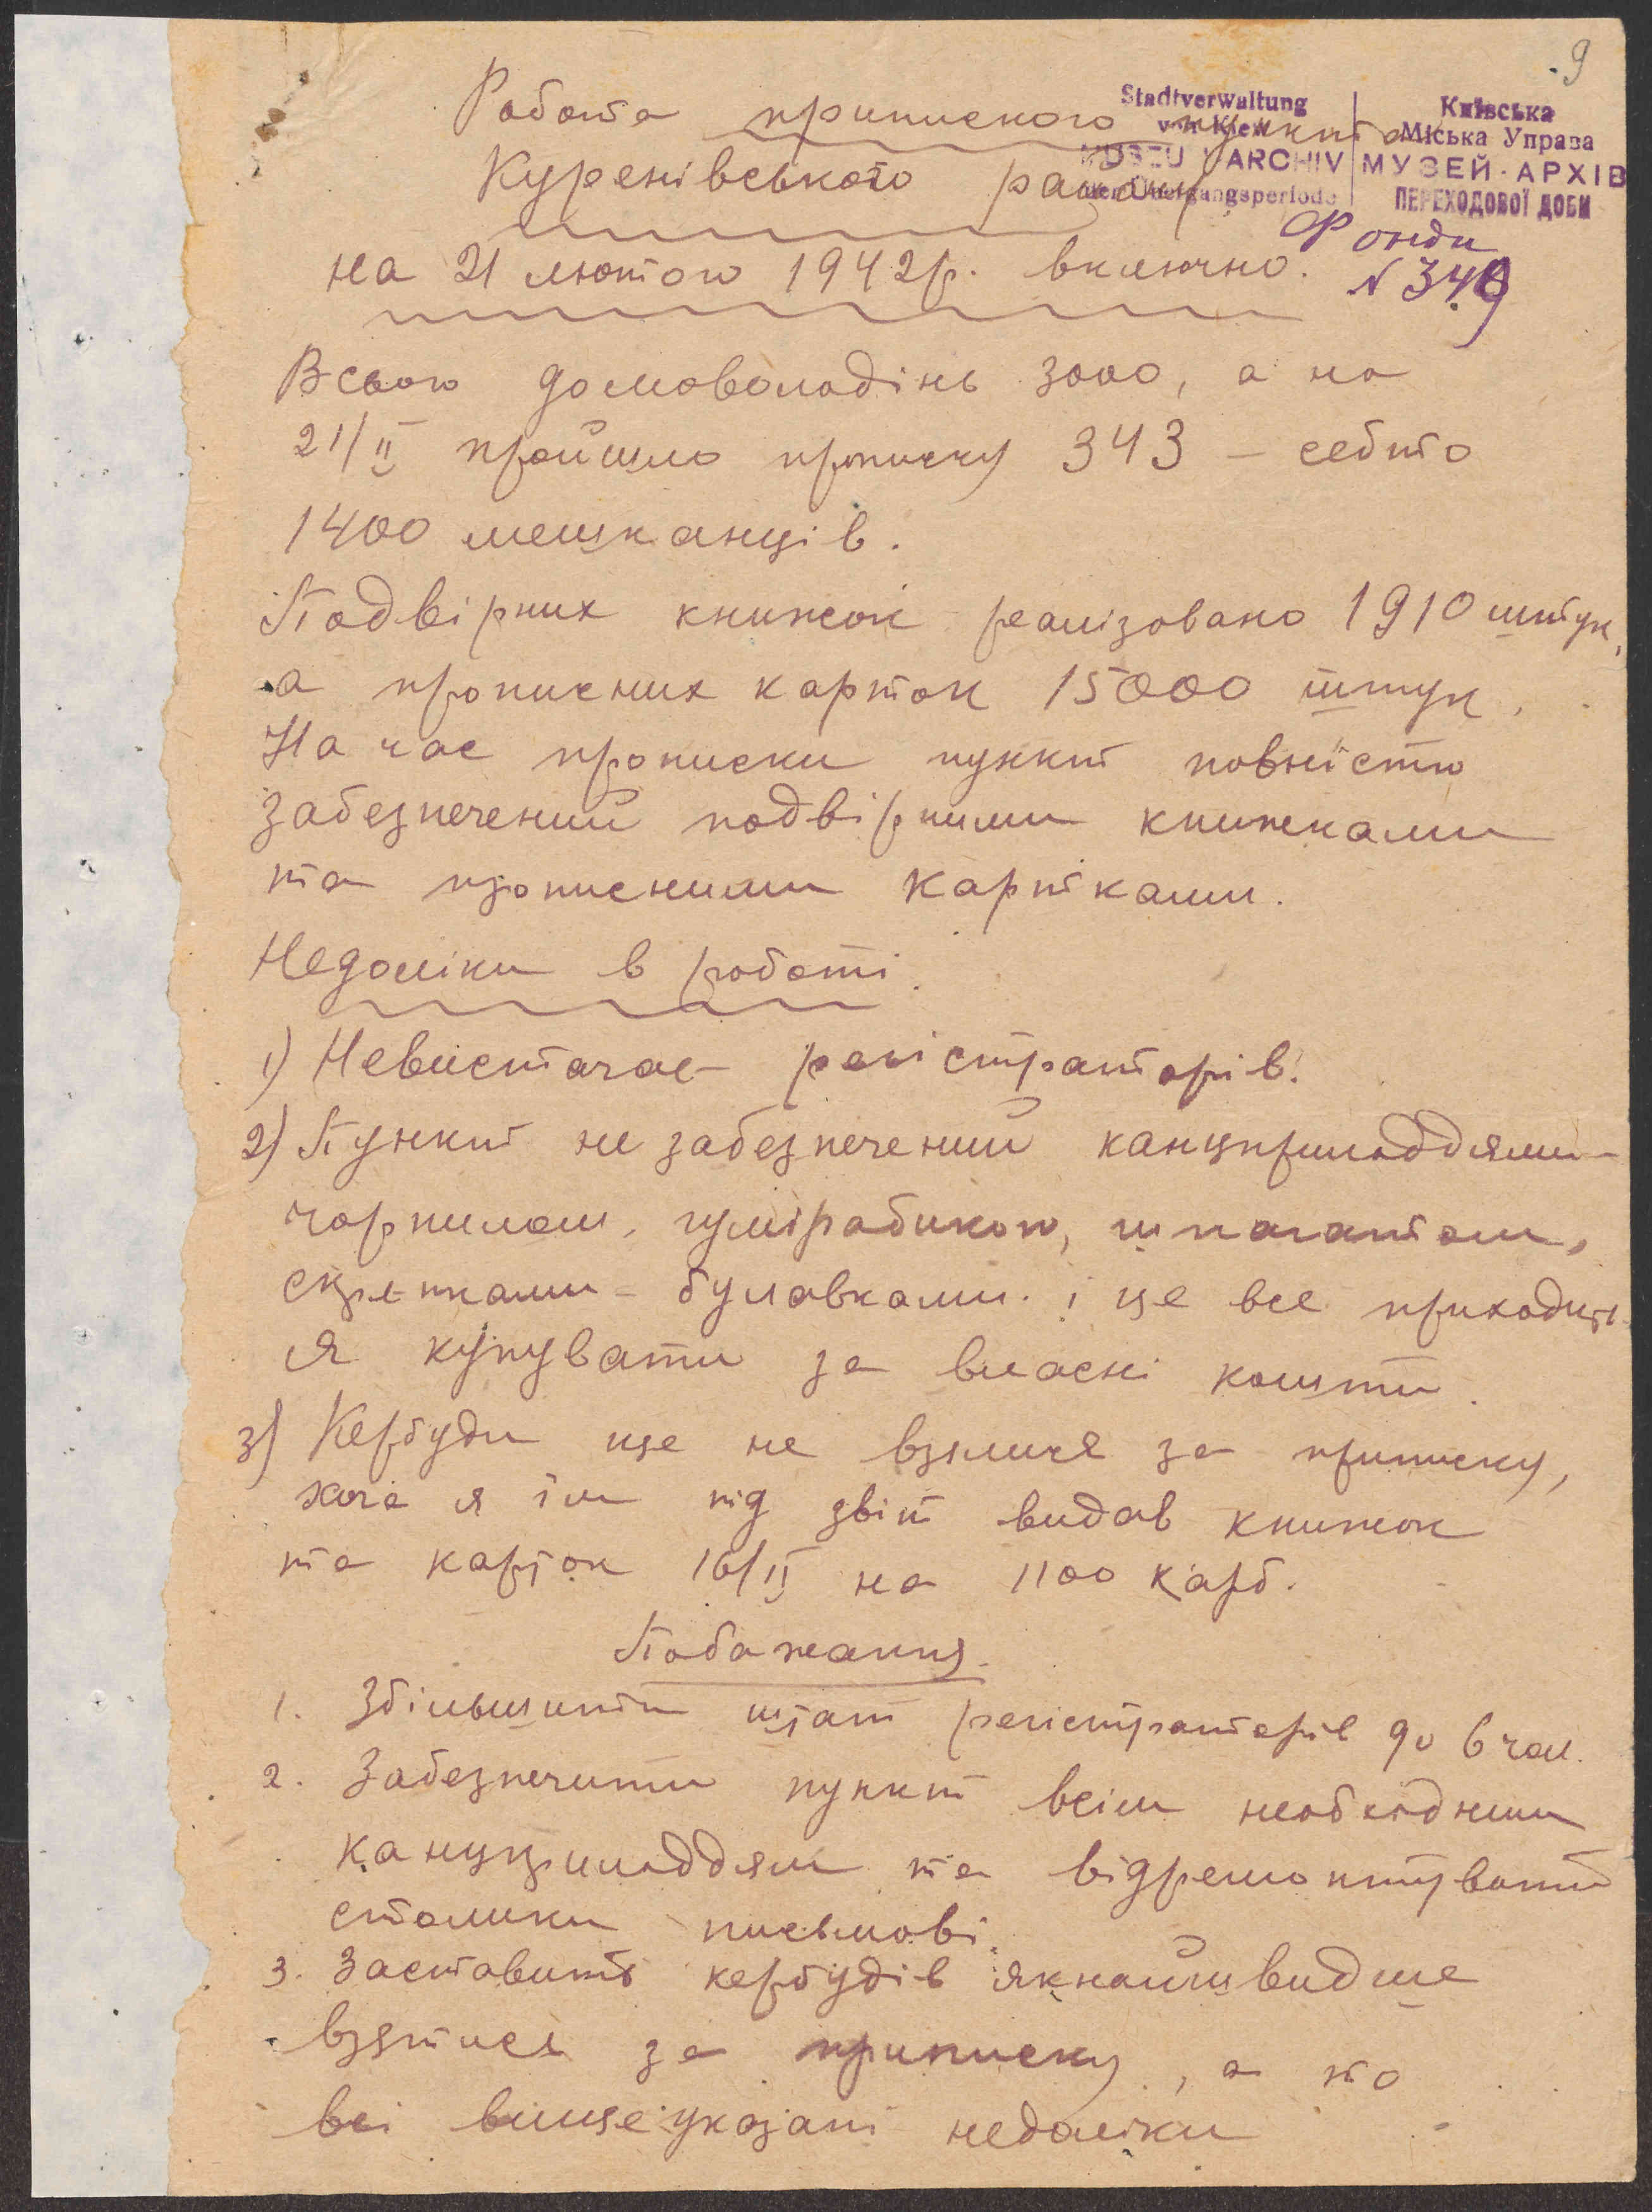 9
Робота припиского пункта
Stadtverwaltung
von Kiew
MUSEUM-ARCHIV
der Übergangsperiode
Київська
Міська Управа
МУЗЕЙ-АРХІВ
ПЕРЕХОДОВОЇ ДОБИ
Куренівського району
Фонди
N 349
на 21 лютого 1942р. включно.
Всього домоволодінь 3000, а на
21/II пройшло прописку 343 – себто
1400 мешканців.
Подвірних книжок реалізовано 1910 штук,
а прописних карток 15000 штук.
На час прописки пункт повністю
забезпечений подвірними книжками
та прописними картками.
Недоліки в роботі.
1) Невистачає регістраторів.
2) Пункт не забезпечений канцприладдями –
чорнилом, гуміарабиком, шпагатом,
скрепками – булавками. і це все приходить-
ся купувати за власні кошти.
3) Кербуди ще не взялися за приписку,
хоча я їм під звіт видав книжок
та карток 16/II на 1100 карб.
Побажання.
1. Збільшити штат регістраторів до 6 чол.
2. Забезпечити пункт всім необхідним
канцприладдям та відремонтувати
столики письмові.
3. Заставить кербудів якнайшвидше
взятися за приписку, а то
всі вищеуказані недоліки